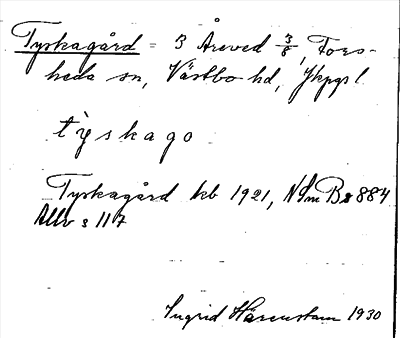 Tyskagård = 3 Åreved 3/8, Fors-
heda sn, Västbo hd, Jkpgs l.
tỳskago
Tyskagård kb 1921, NSmB s 884
Allv s 117
Ingrid Härenstam 1930